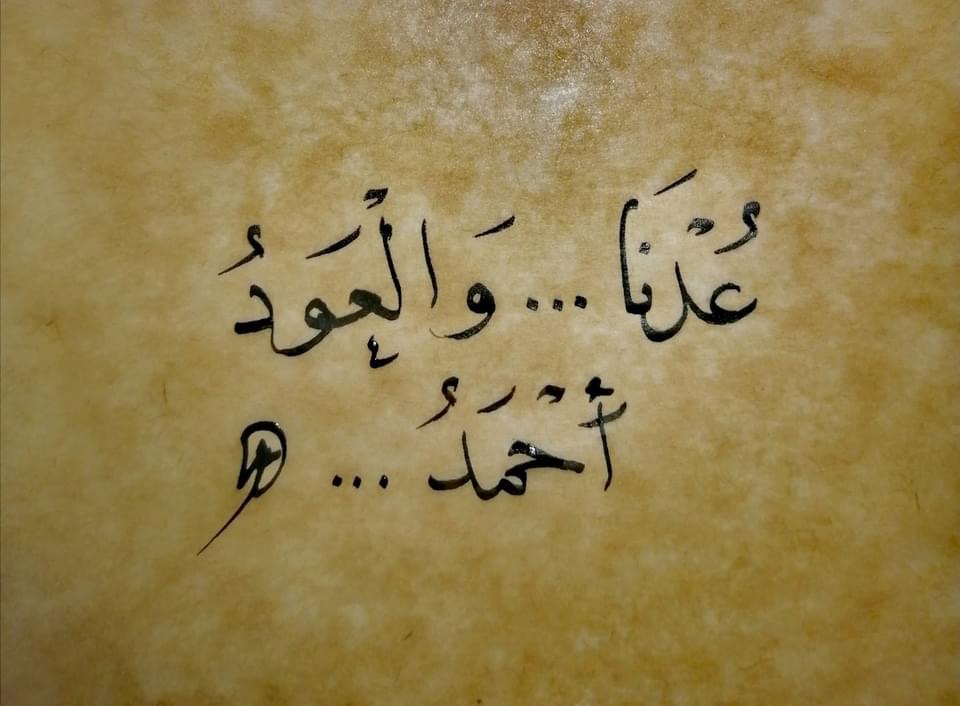 عُدْنَا ... وَالْعَودُ
أَحْمَدُ ...